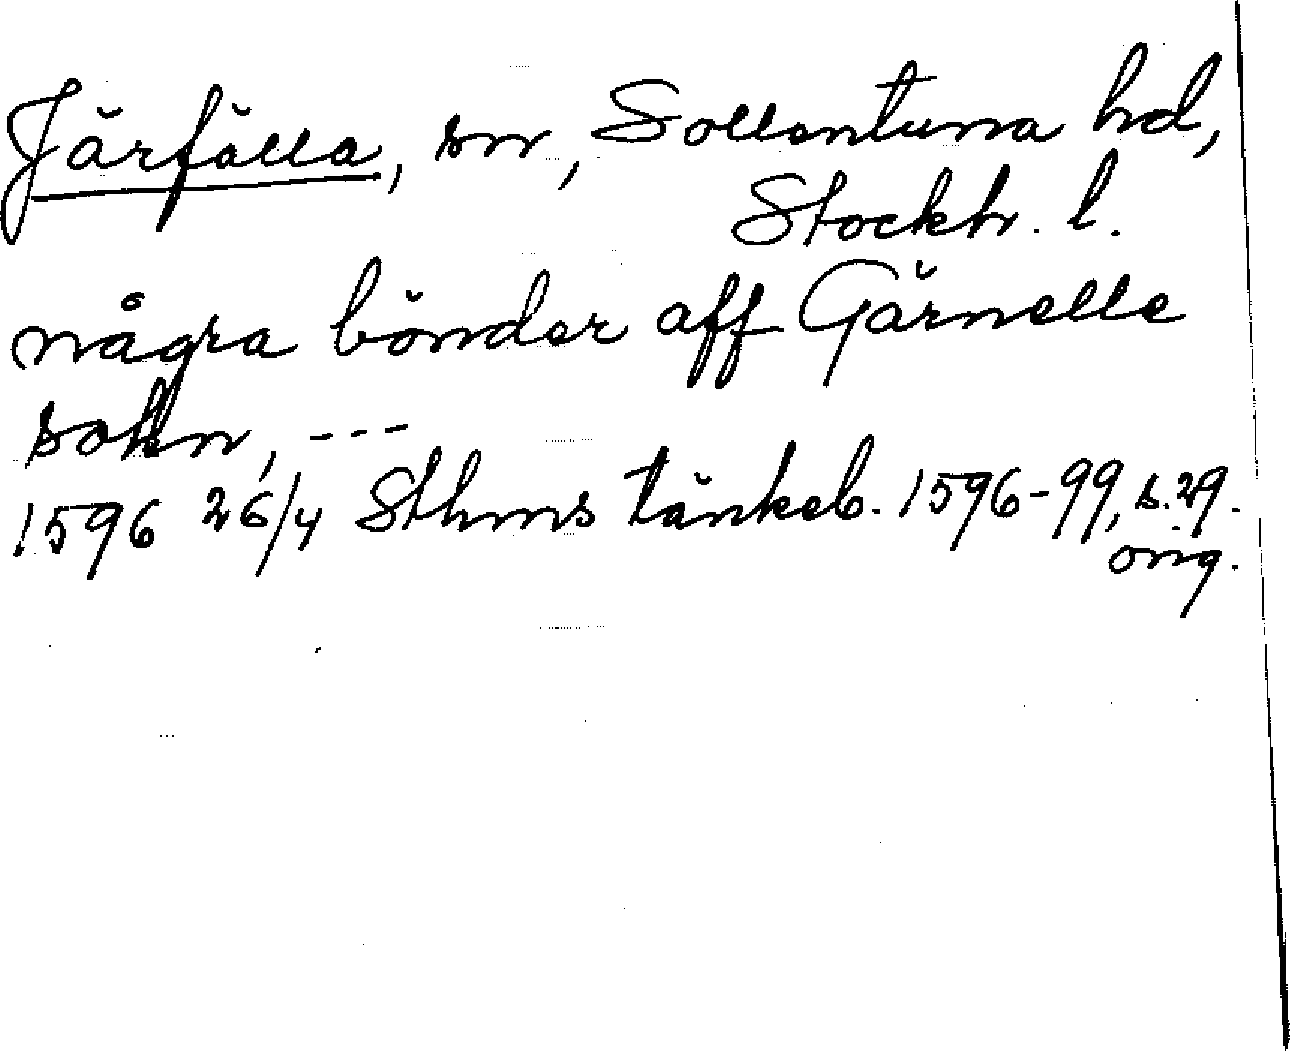 Järfälla, sn, Sollentuna hd,
Stockh. l.
några bönder aff Gärnelle
sokn, ---
1596 26/4 Sthms tänkeb. 1596-99, s. 29.
orig.